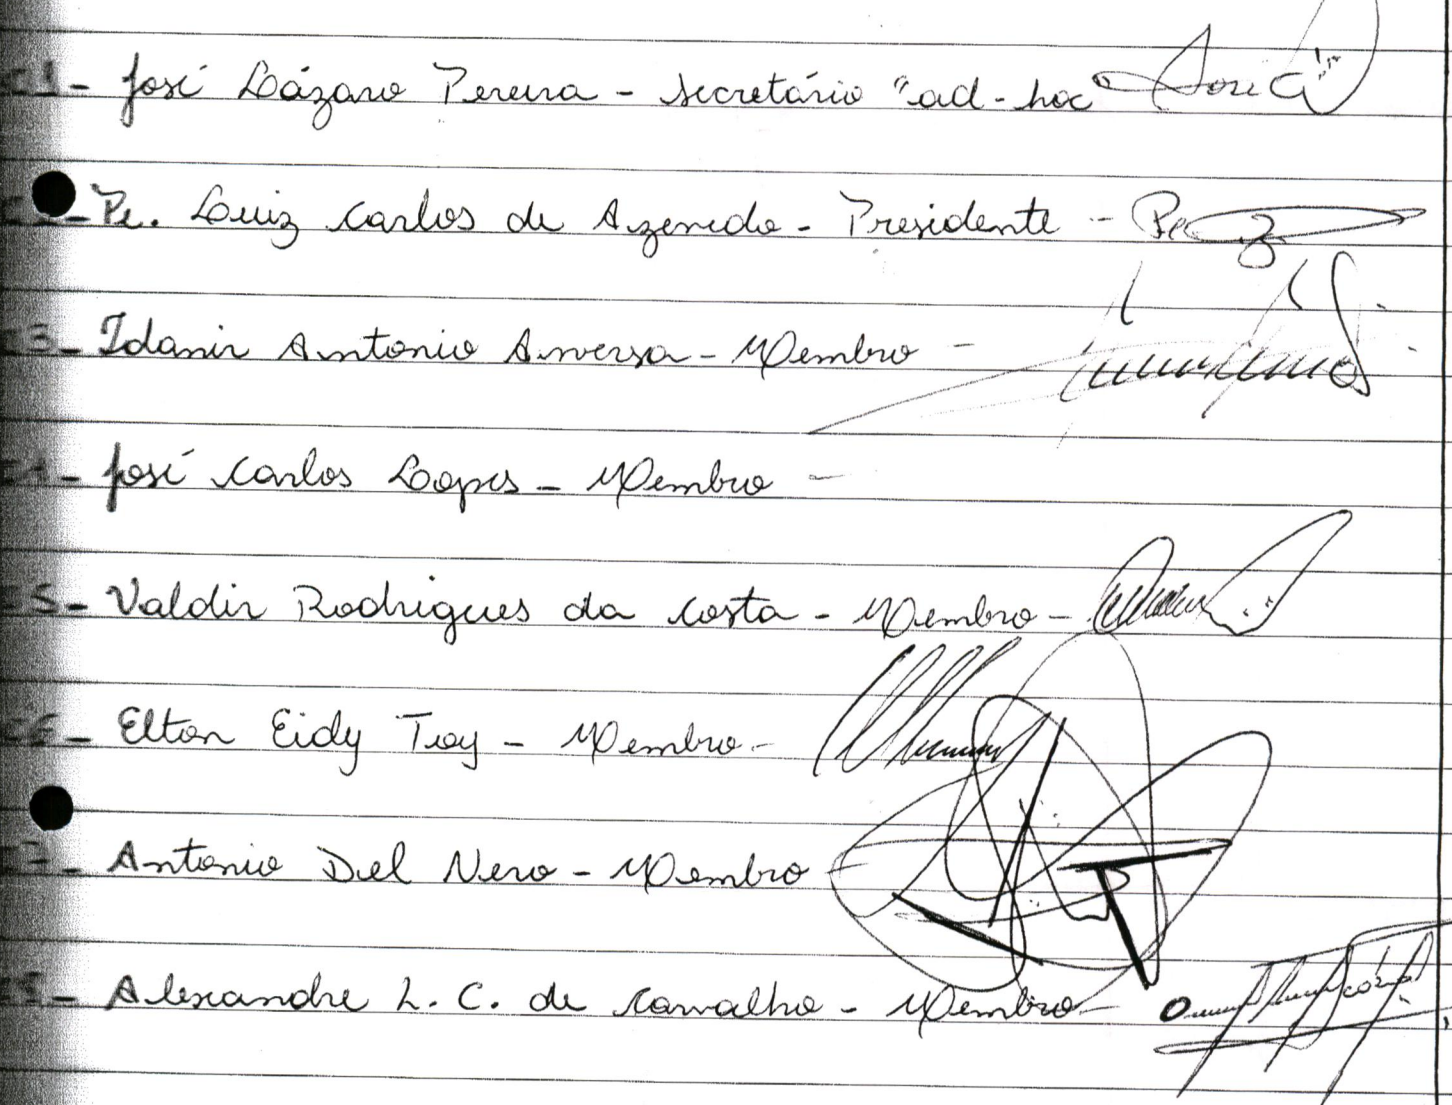 01- José Lázaro Pereira - secretário "ad-hoc"
Pe. Luiz Carlos de Azevedo - Presidente - Pe
03- Idanir Antonio Anversa - Membro -
04- José Carlos Lopes - Membro -
05- Valdir Rodrigues da Costa - Membro -
06- Elton Eidy Toy - Membro -
07- Antonio Del Nero - Membro
- Alexandre L. C. de Carvalho - Membro -